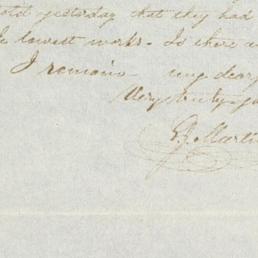 told yesterday that they had
lowest works. Is there
I remain my dear
Very truly
Martin